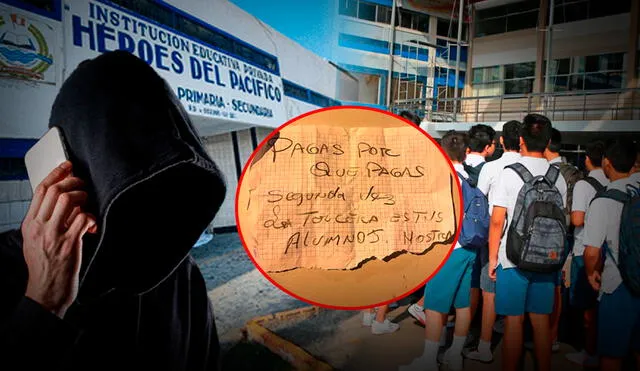 INSTITUCIÓN EDUCATIVA PRIVADA
HÉROES DEL PACÍFICO
PRIMARIA - SECUNDARIA
PAGAS POR
QUE PAGAS
segunda vez
la TERCERA ESTIS
ALUMNOS. MOSTRO